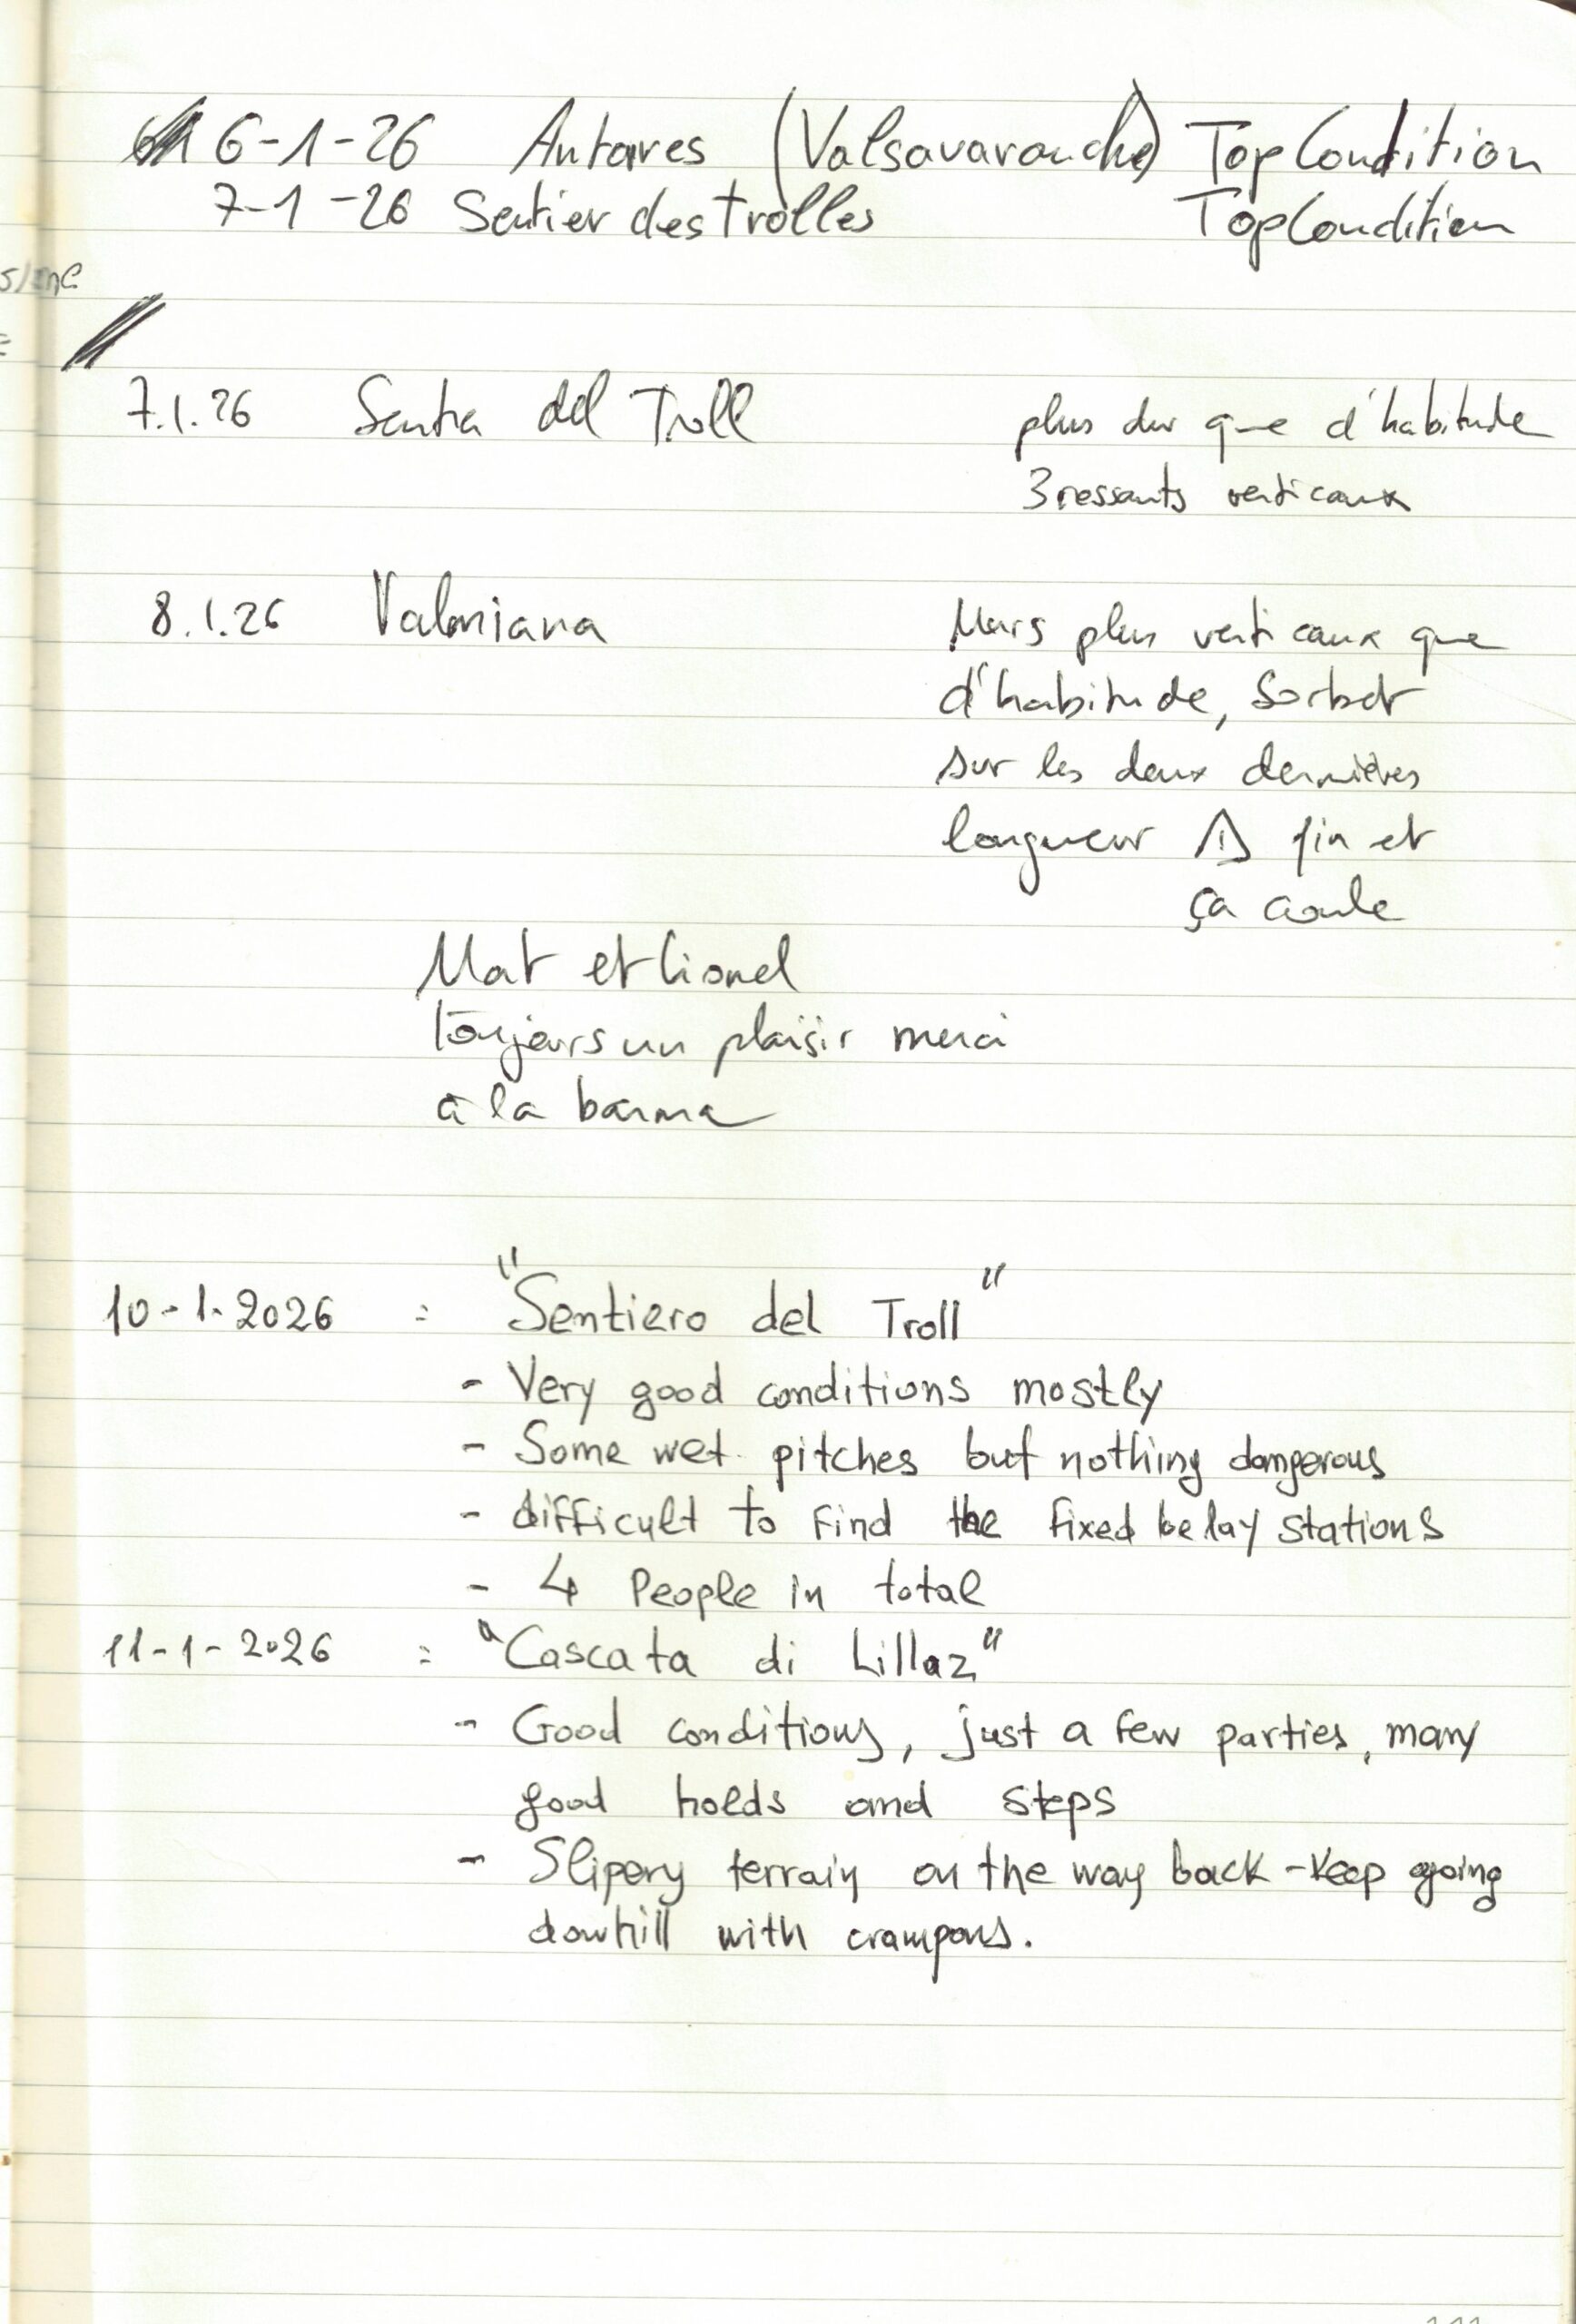 6-1-26 Antares (Valsavaranche) Top Condition
7-1-26 Sentier des Trolles Top Condition
7.1.26 del Troll plus dur que d'habitude
3 ressauts verticaux
8.1.26 Valmiana Murs plus verticaux que
d'habitude, Sorbet
sur les deux dernières
longueur ⚠ fin et
ça coule
Mat et Lionel
Toujours un plaisir merci
à la barma
10-1-2026 = "Sentiero del Troll"
- Very good conditions mostly
- Some wet pitches but nothing dangerous
- difficult to find the fixed belay stations
- 4 People in total
11-1-2026 = "Cascata di Lillaz"
- Good conditions, just a few parties, many
good holds and steps
- Slipery terrain on the way back - Keep going
dowhill with crampons.